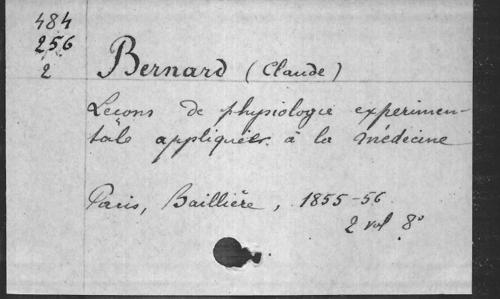 484
256
2
Bernard (Claude)
Leçons de physiologie expérimen-
tale appliquées à la médecine
Paris, Baillière, 1855-56
2 vol 8°